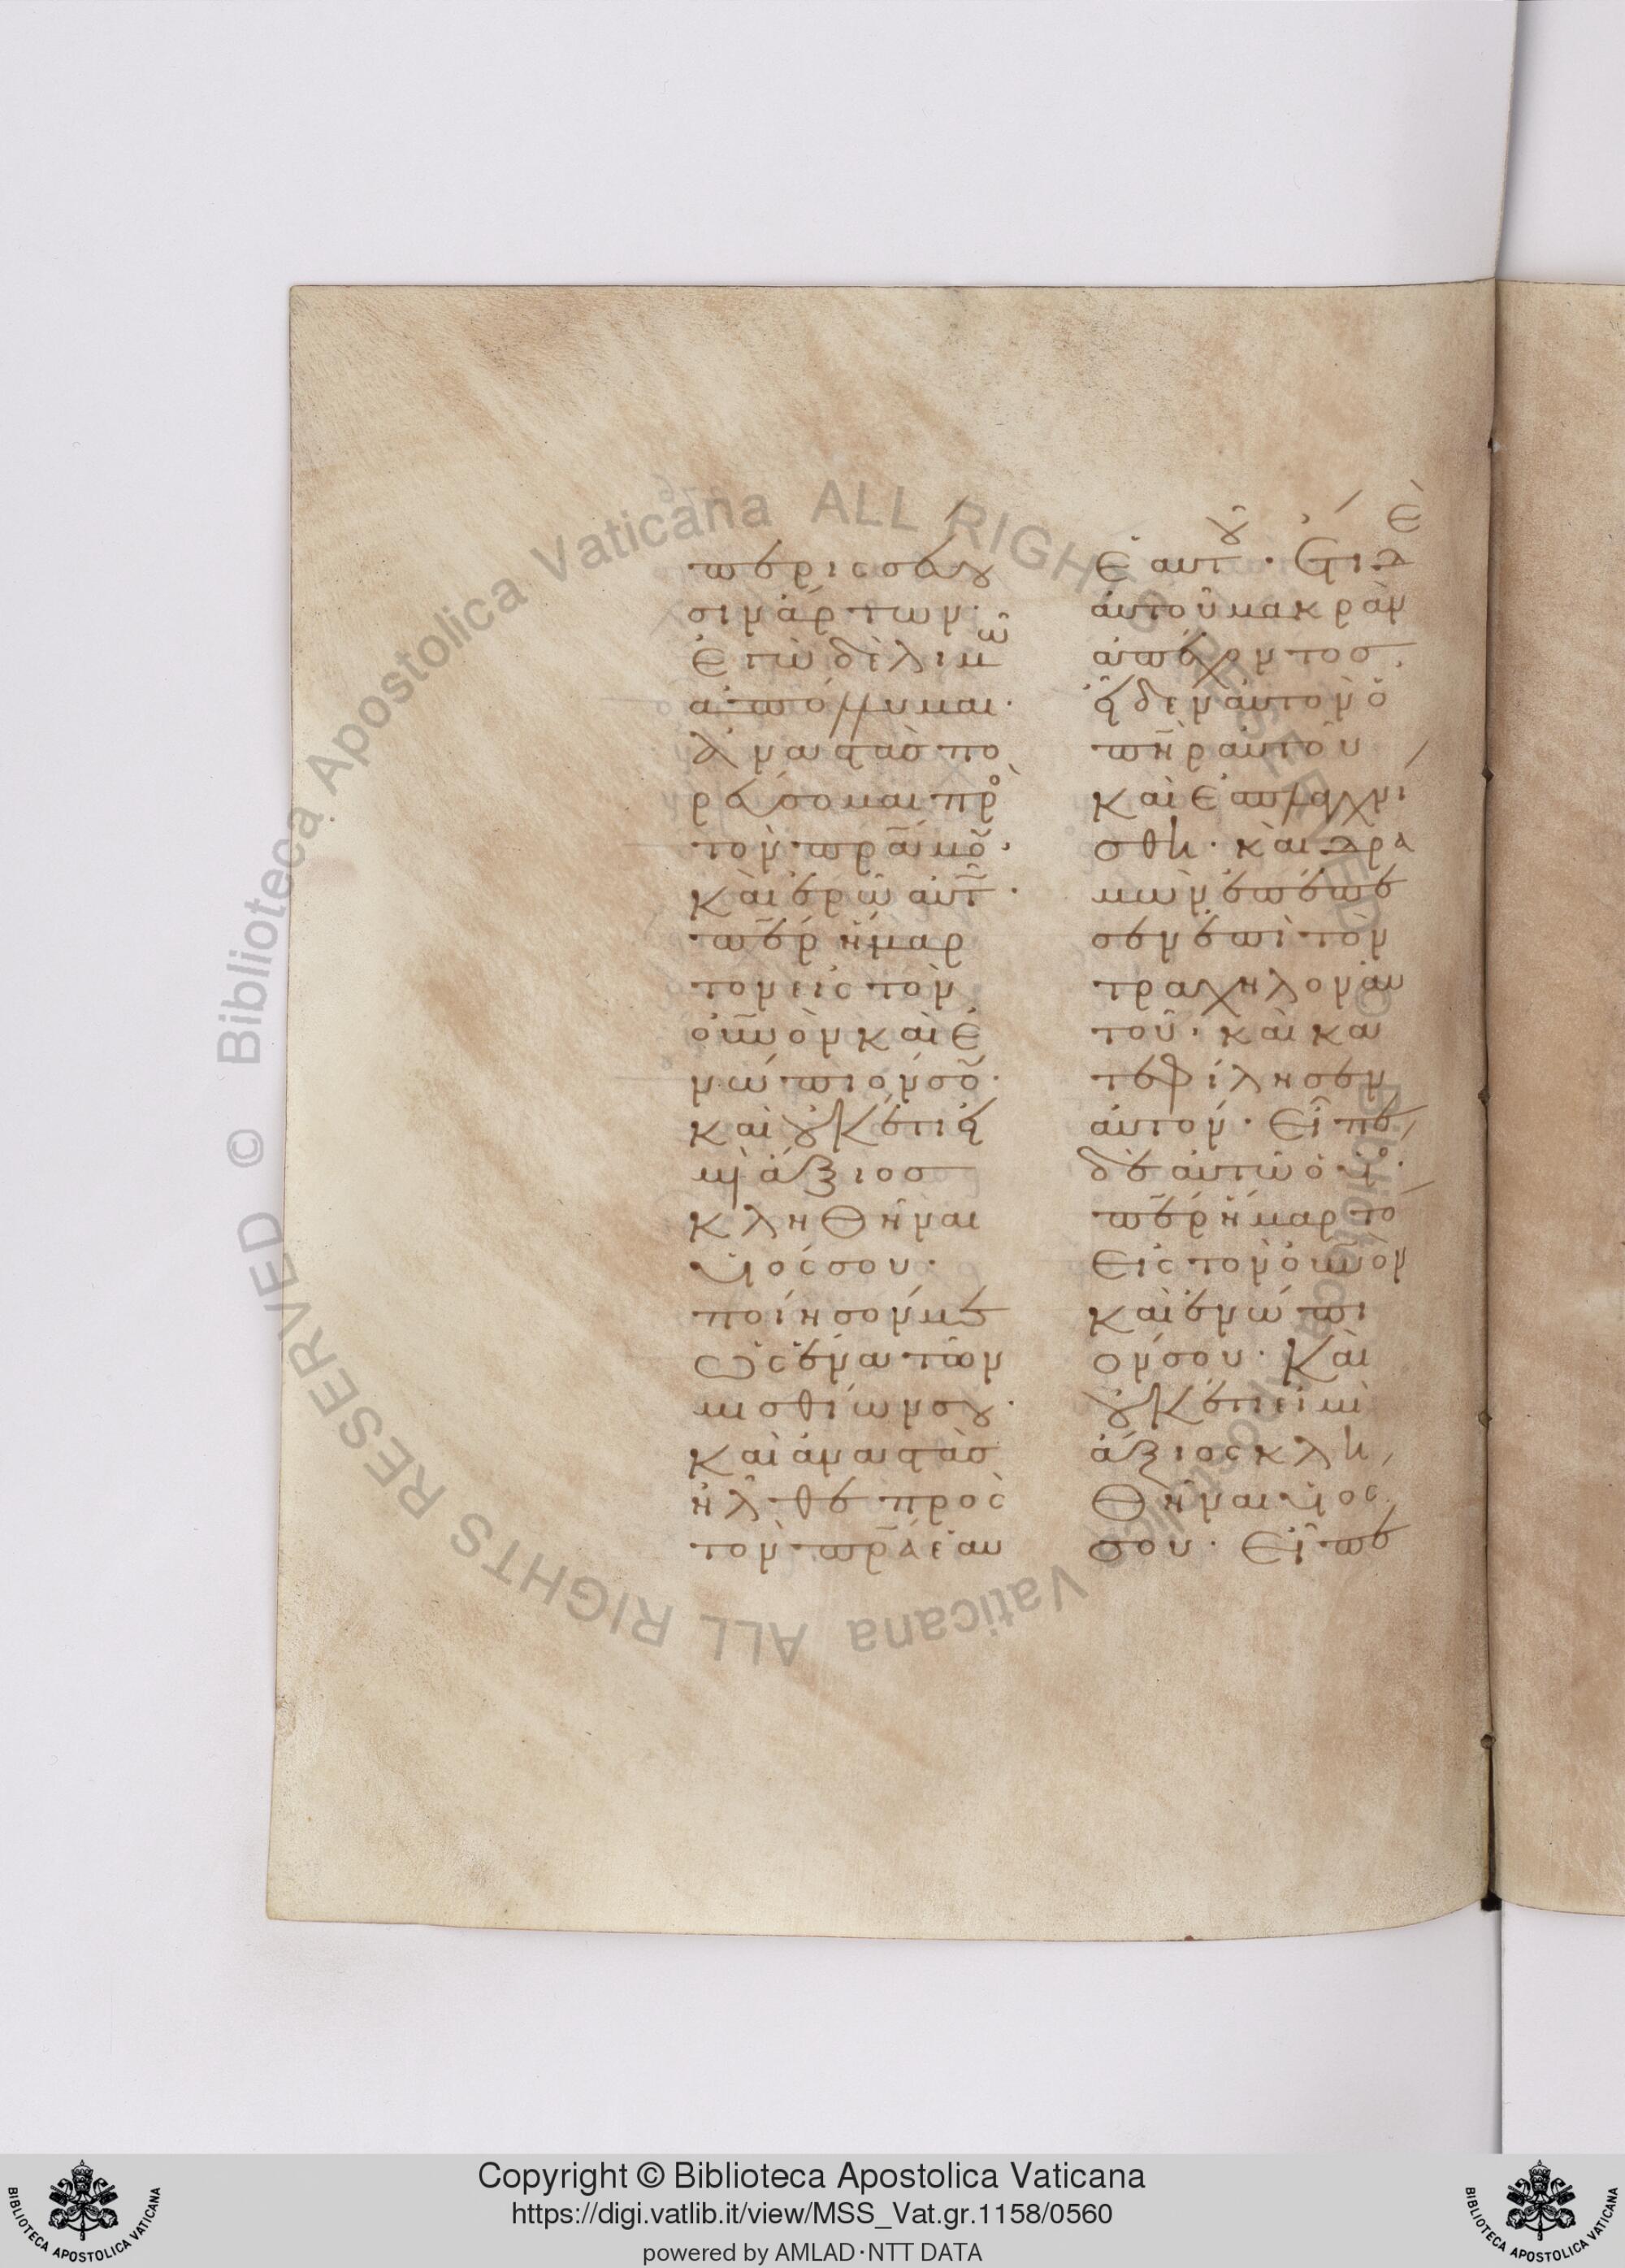 περισσεύου
σιν ἄρτων·
ἐγὼ δὲ λιμῶ
ἀπόλλυμαι·
ἀναστὰς πο
ρεύσομαι πρὸ
τὸν πρ̅α μου·
καὶ ἐρῶ αὐτ·
πε̅ρ ἥμαρ
τον εἰς τὸν
οὐ̅νὸν καὶ ἐ
νώπιόν σου·
καὶ οὐκέτι εἰ
μὶ ἄξιος
κληθῆναι
υἱός σου·
ποίησόν με
ὡς ἕνα τῶν
μισθίων σου·
καὶ ἀναστὰς
ἦλθε πρὸς
τὸν πρ̅α ἑαυ
ἑαυτοῦ· ἔτι δὲ
αὐτοῦ μακρὰν
ἀπέχοντος,
εἶδεν αὐτὸν ὁ
πη̅ρ αὐτοῦ
καὶ ἐσπλαγχνί
σθη· καὶ δρα
μὼν ἐπέπε
σεν ἐπὶ τὸν
τράχηλον αὐ
τοῦ· καὶ κα
τεφίλησεν
αὐτόν· Εἶπε
δὲ αὐτῶ ὁ υἱο·
πε̅ρ ἥμαρτο
εἰς τὸν οὐ̅νὸν
καὶ ἐνώπι
όν σου· Καὶ
οὐκέτι εἰμὶ
ἄξιος κλη
θῆναι υἱός
σου· Εἶπε
© Biblioteca Apostolica Vaticana ALL RIGHTS RESERVED © Biblioteca Apostolica Vaticana ALL RIGHTS RESERVED
Copyright © Biblioteca Apostolica Vaticana
https://digi.vatlib.it/view/MSS_Vat.gr.1158/0560
powered by AMLAD·NTT DATA
BIBLIOTECA APOSTOLICA VATICANA
BIBLIOTECA APOSTOLICA VATICANA